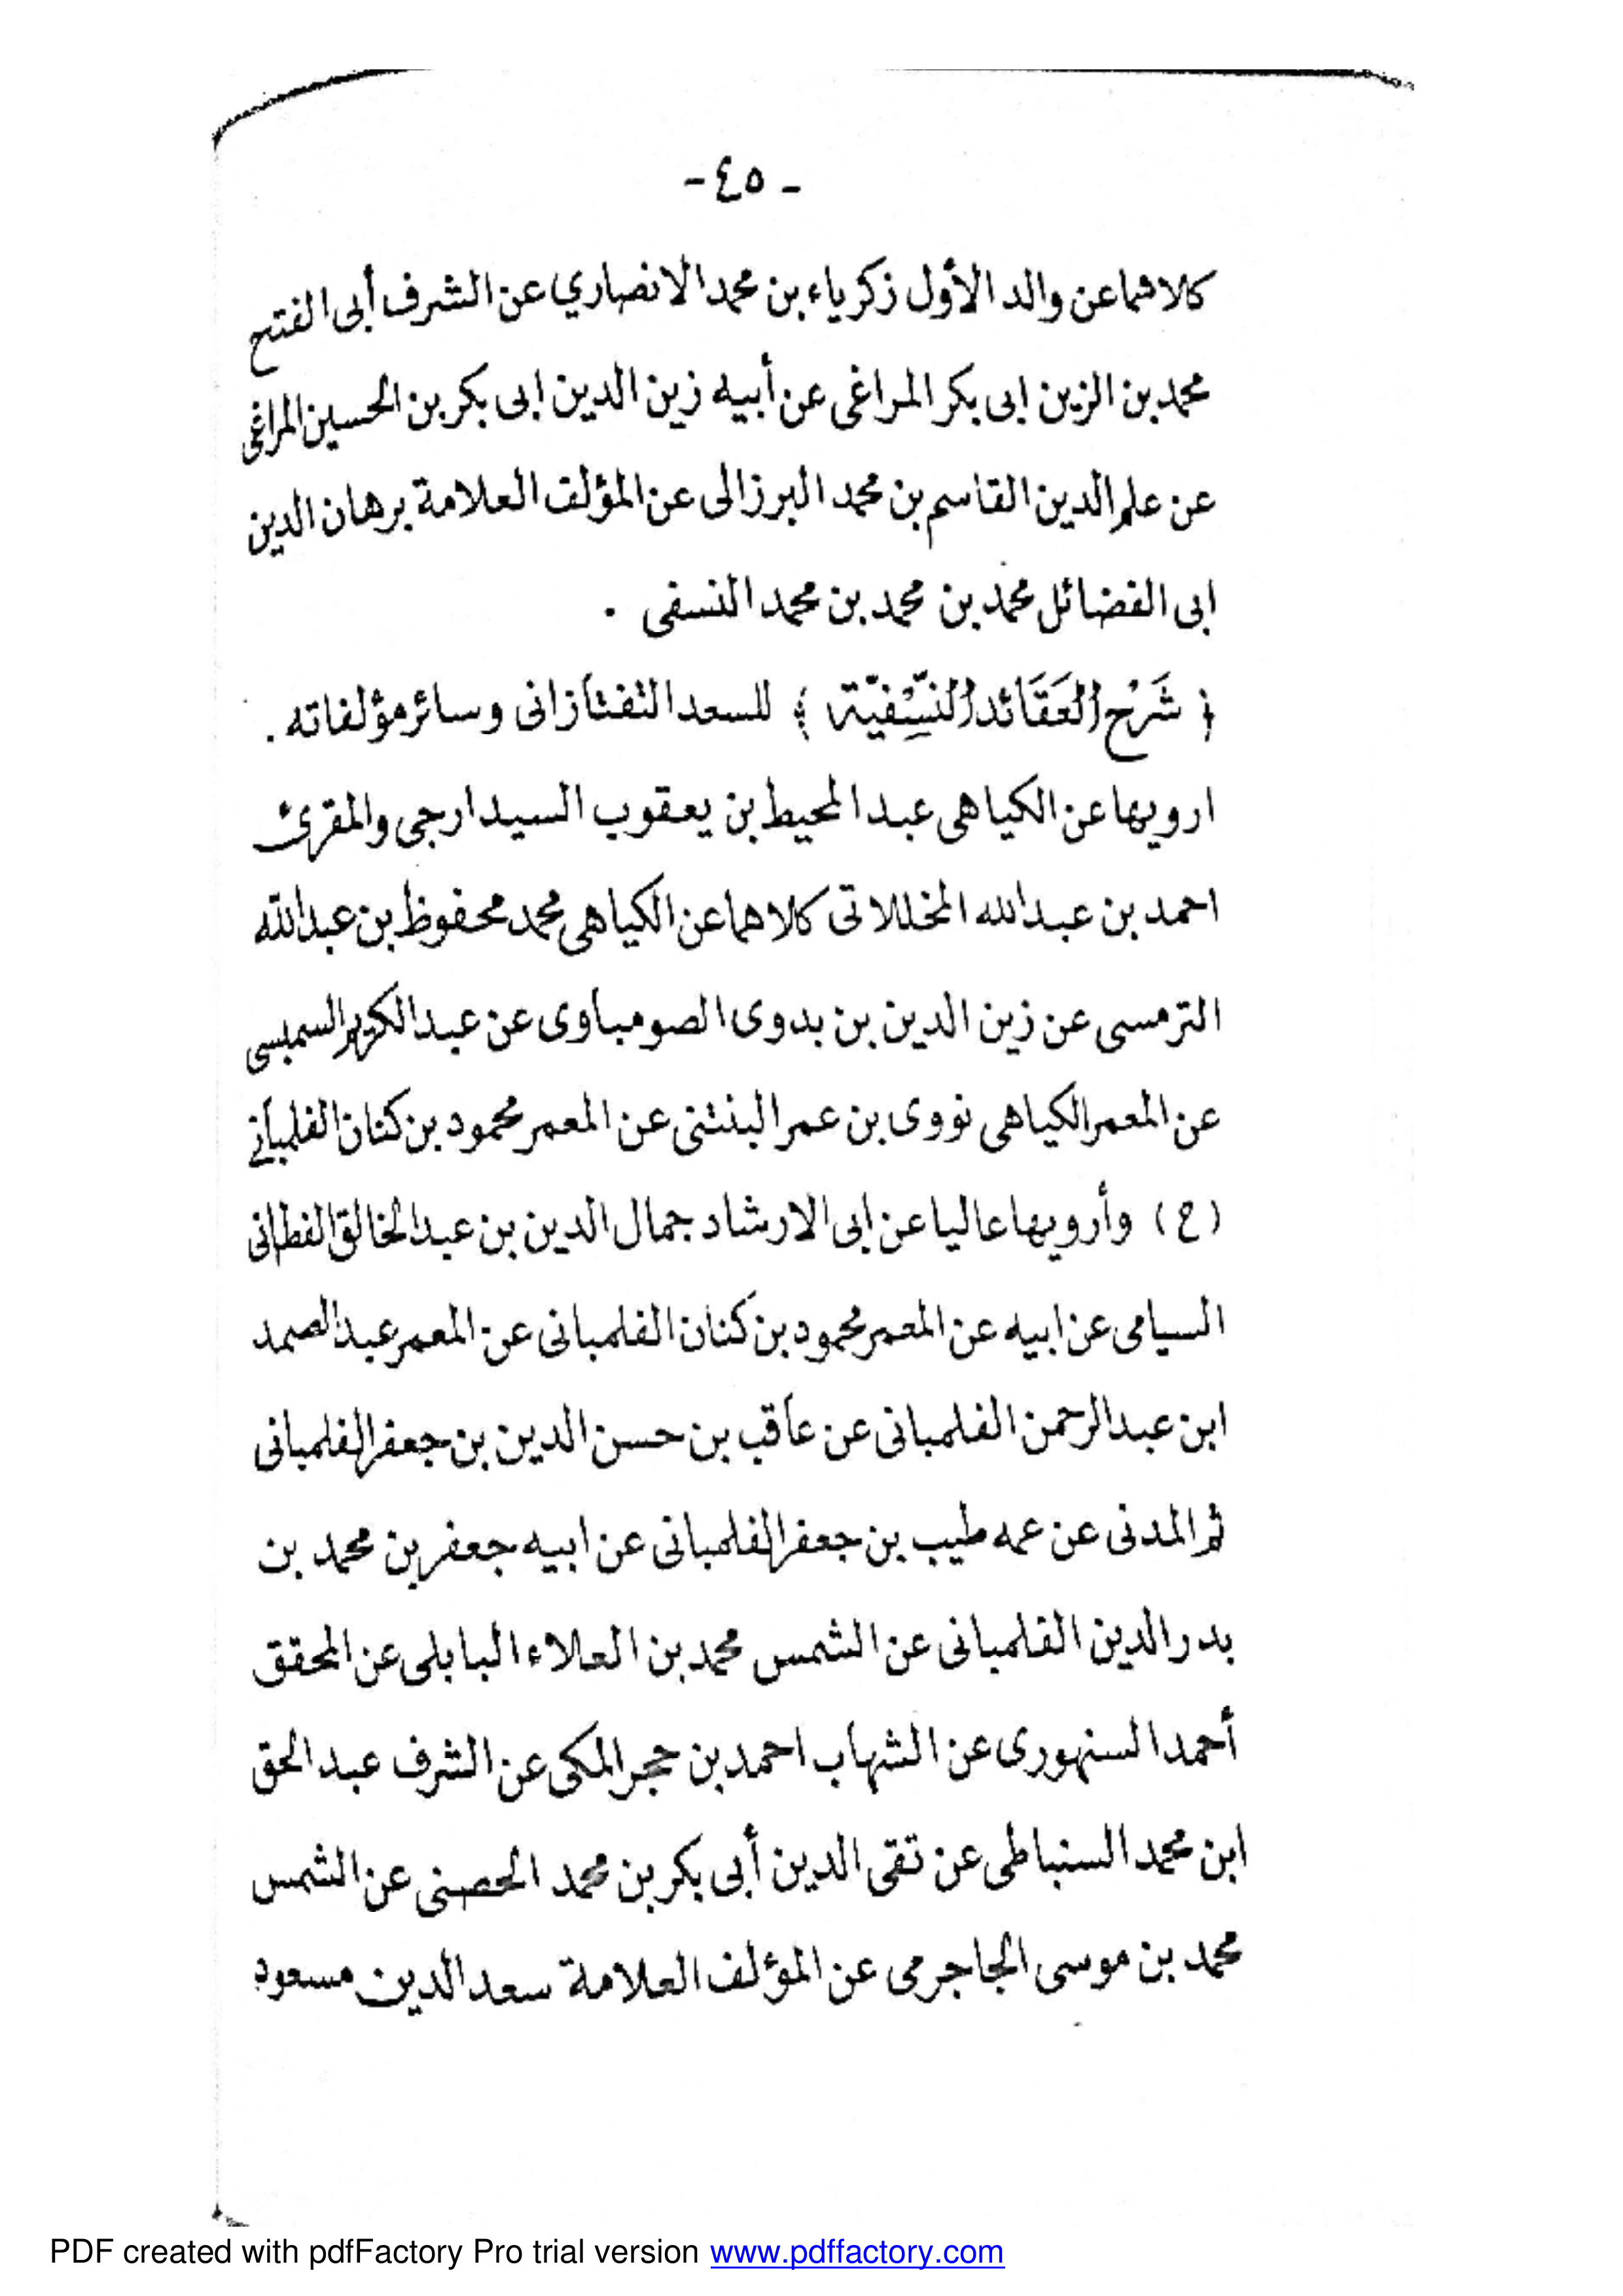 - ٤٥ -
كلاهما عن والد الأول زكرياء بن محمد الانصاري عن الشرف أبى الفتح
محمد بن الزين ابى بكر المراغى عن أبيه زين الدين ابى بكر بن الحسين المراغى
عن علم الدين القاسم بن محمد البرزالى عن المؤلف العلامة برهان الدين
ابى الفضائل محمد بن محمد بن محمد النسفى .
﴿ شَرْح العَقَائد النَّسَفِيَّة ﴾ للسعد التفتازانى وسائر مؤلفاته .
ارويها عن الكياهى عبد المحيط بن يعقوب السيدارجى والمقرئ
احمد بن عبدالله المخللاتى كلاهما عن الكياهى محمد محفوظ بن عبدالله
الترمسى عن زين الدين بن بدوى الصومباوى عن عبد الكريم السمبسى
عن المعمر الكياهى نووى بن عمر البنتنى عن المعمر محمود بن كنان الفلمباني
(ح) وأرويها عاليا عن ابى الارشاد جمال الدين بن عبد الخالق الفطانى
السيامى عن ابيه عن المعمر محمود بن كنان الفلمبانى عن المعمر عبد الصمد
ابن عبد الرحمن الفلمبانى عن عاقب بن حسن الدين بن جعفر الفلمبانى
ثم المدنى عن عمه طيب بن جعفر الفلمبانى عن ابيه جعفر بن محمد بن
بدر الدين الفلمبانى عن الشمس محمد بن العلاء البابلى عن المحقق
أحمد السنهورى عن الشهاب احمد بن حجر المكى عن الشرف عبد الحق
ابن محمد السنباطى عن تقى الدين أبى بكر بن محمد الحصنى عن الشمس
محمد بن موسى الجاجرمى عن المؤلف العلامة سعد الدين مسعود
PDF created with pdfFactory Pro trial version www.pdffactory.com